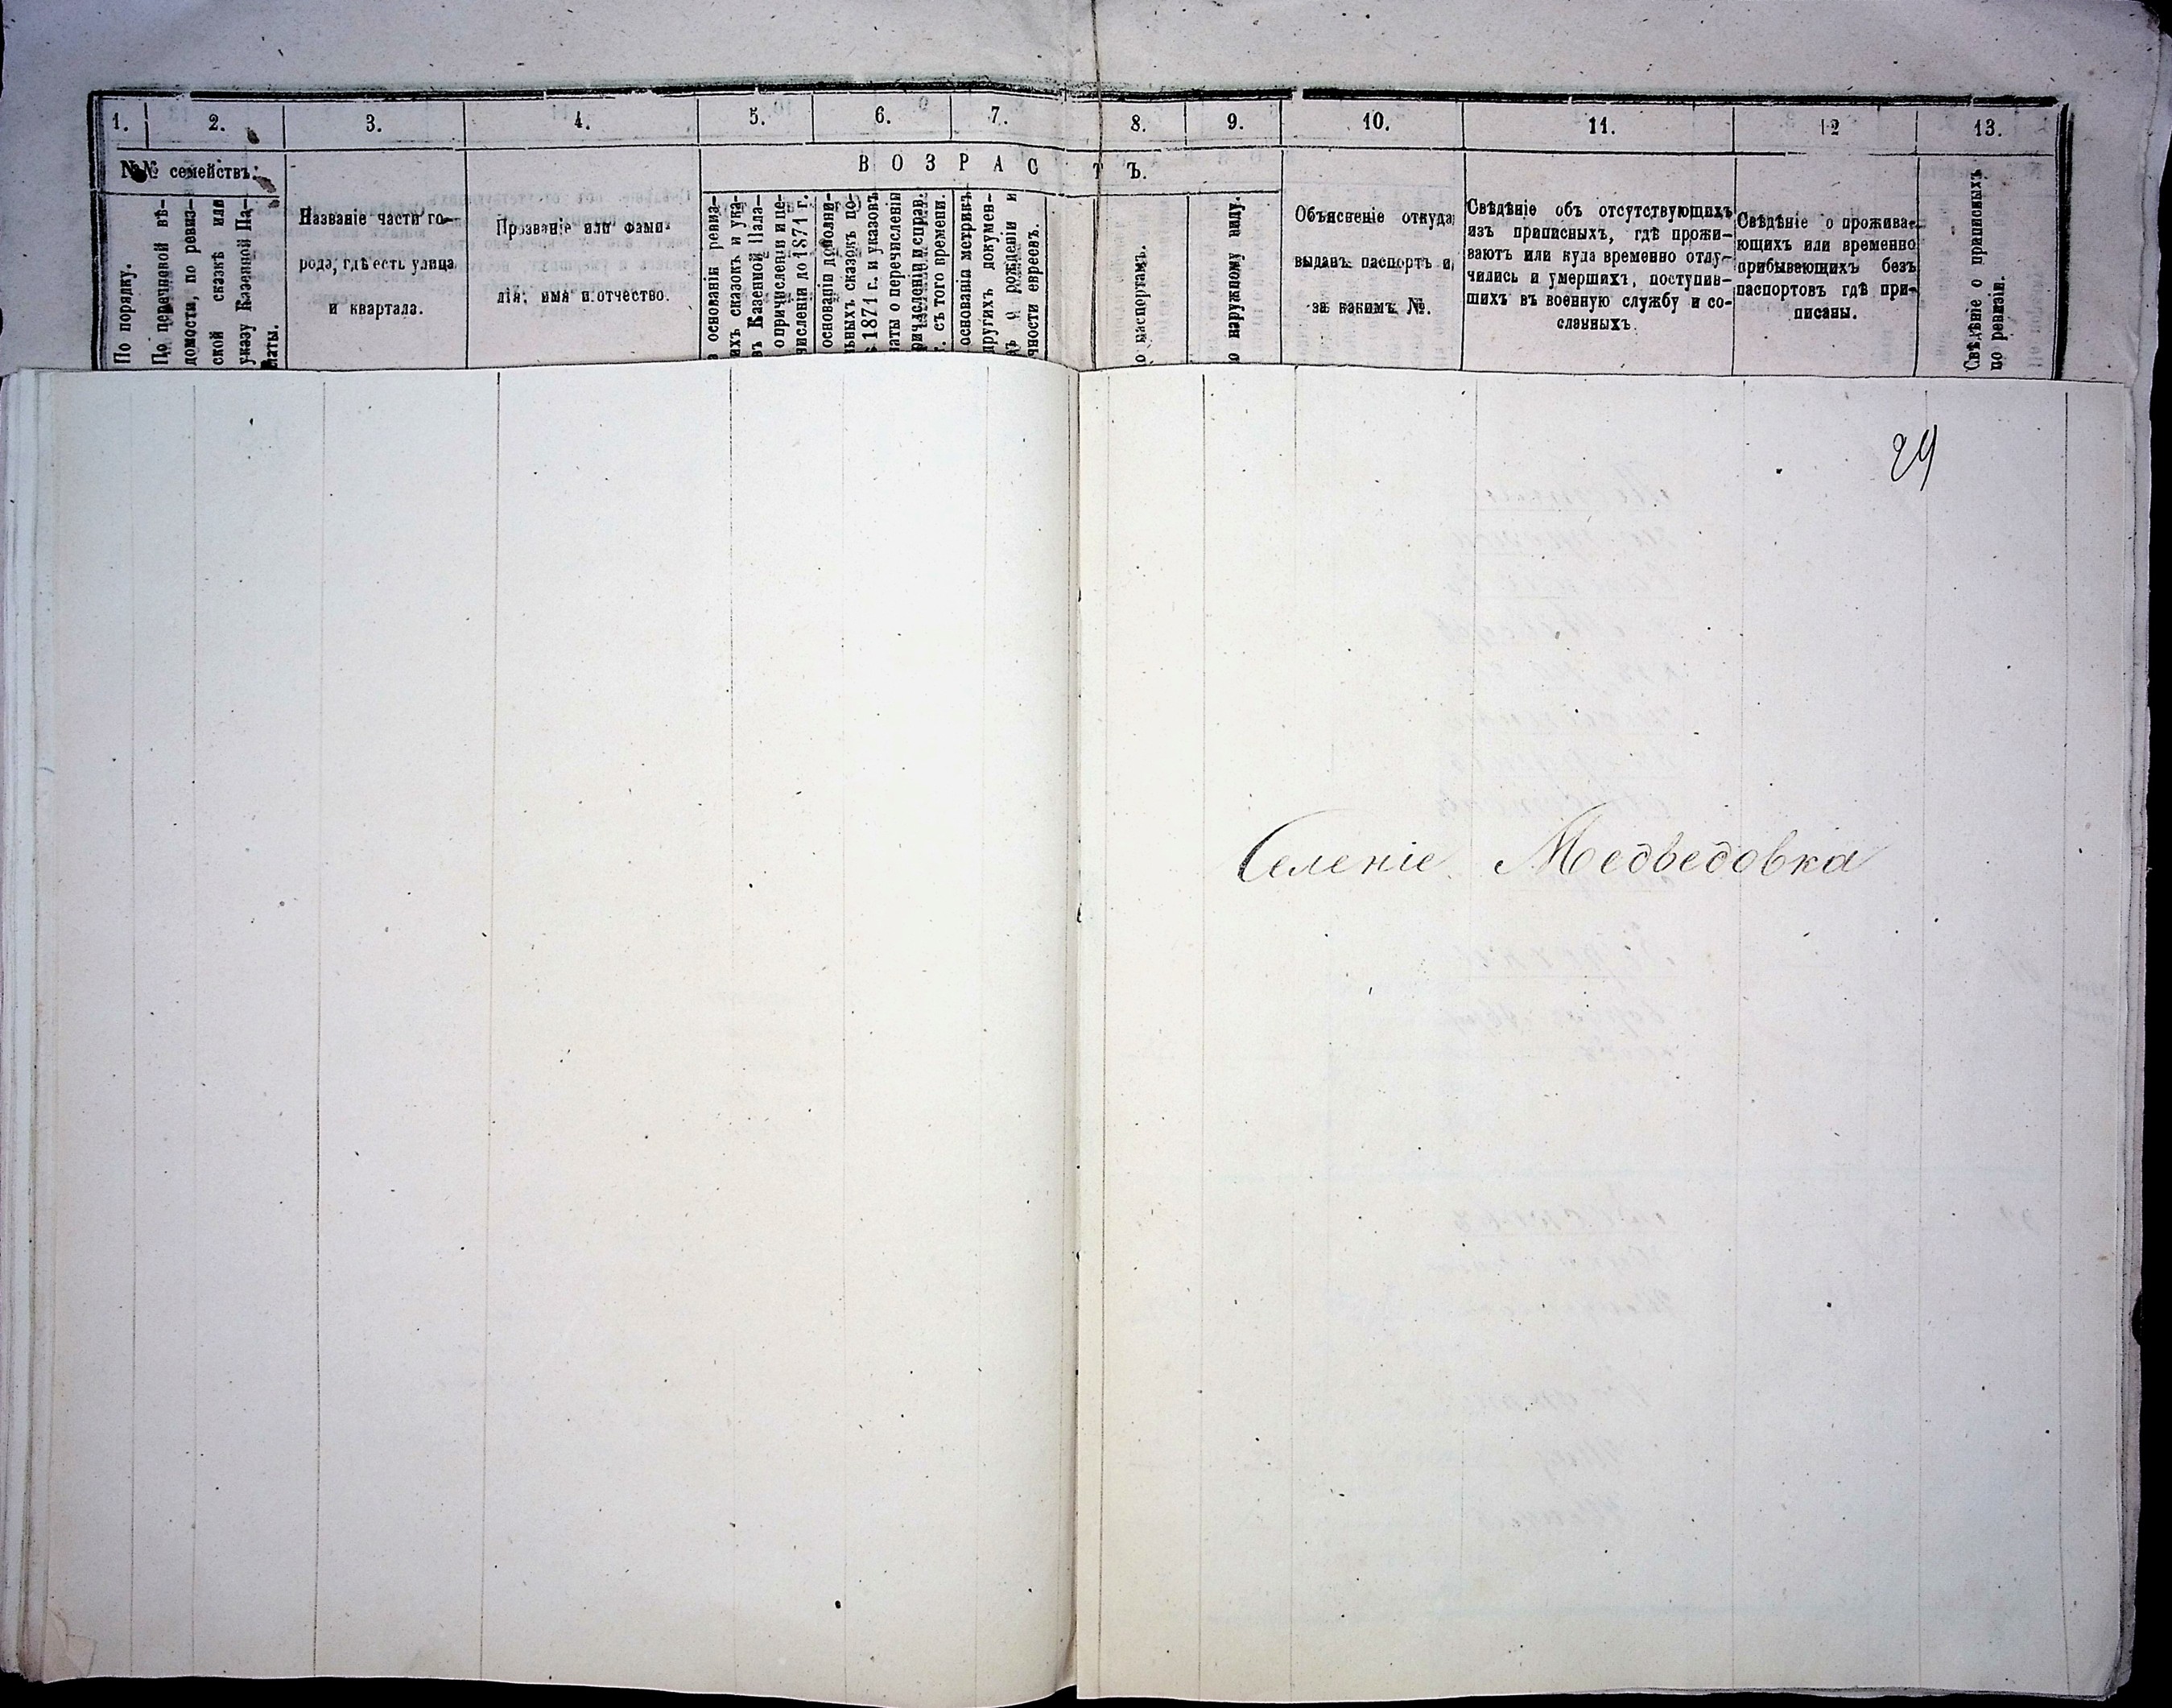 1.
2.
3.
4.
5.
6.
7.
8.
9.
10.
11.
12
13.
№№ семействъ.
В О З Р А С Т Ъ.
По порядку.
По перечневой вѣ-
домости, по ревиз-
ской сказкѣ или
указу Казенной Па-
латы.
Названіе части го-
рода, гдѣ есть улица
и квартала.
Прозваніе или фами-
лія, имя и отчество.
основаніи ревиз-
ихъ сказокъ и ука-
въ Казенной Пала-
о причисленіи и пе-
численіи до 1871 г.
основаніи дополни-
льныхъ сказокъ по-
1871 г. и указовъ
латы о перечисленіи
причисленіи и справ.
съ того времени.
основаніи метрикъ
другихъ докумен-
о рожденіи и
чности евреевъ.
по паспортамъ.
о наружному виду.
Объясненіе откуда
выданъ паспортъ и
за какимъ №.
Свѣдѣніе объ отсутствующихъ
изъ приписныхъ, гдѣ прожи-
ваютъ или куда временно отлу-
чились и умершихъ, поступив-
шихъ въ военную службу и со-
сланныхъ
Свѣдѣніе о прожива-
ющихъ или временно
прибывающихъ безъ
паспортовъ гдѣ при-
писаны.
Свѣдѣніе о приписныхъ
по ревизіи.
29
Селеніе Медведовка